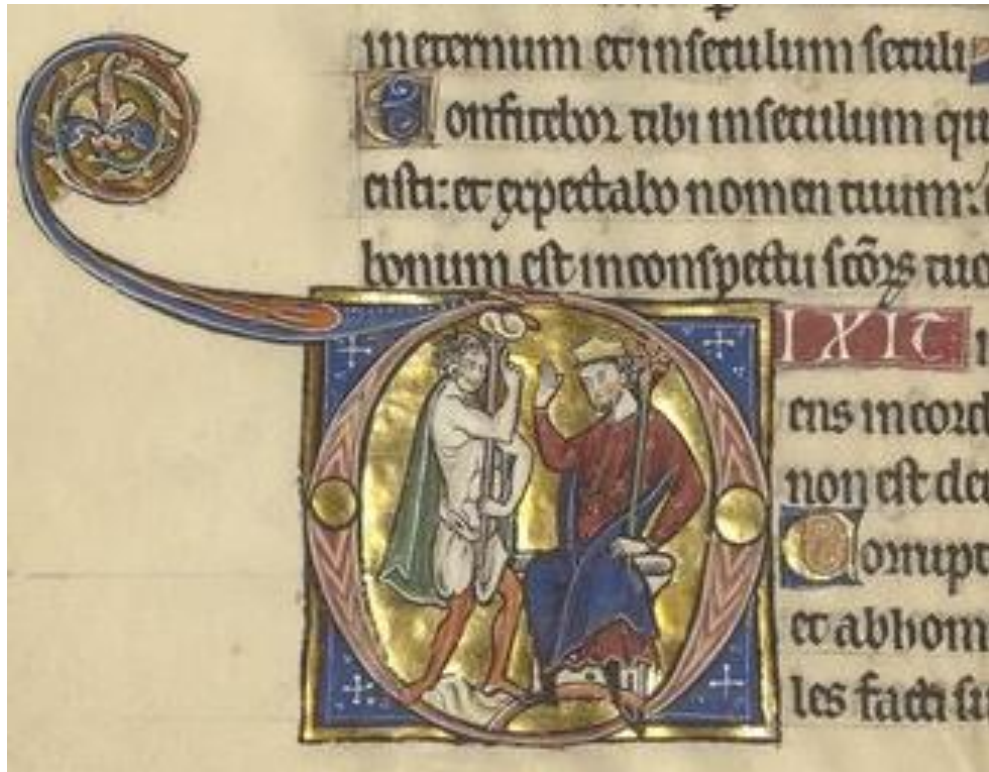 in eternum et in seculum seculi
Confitebor tibi in seculum qu
cisti: et expectabo nomen tuum:
bonum est in conspectu scōꝝ tuo
DIXIT i
ens in cord
non est deu
Corrupt
et abhom
les facti su